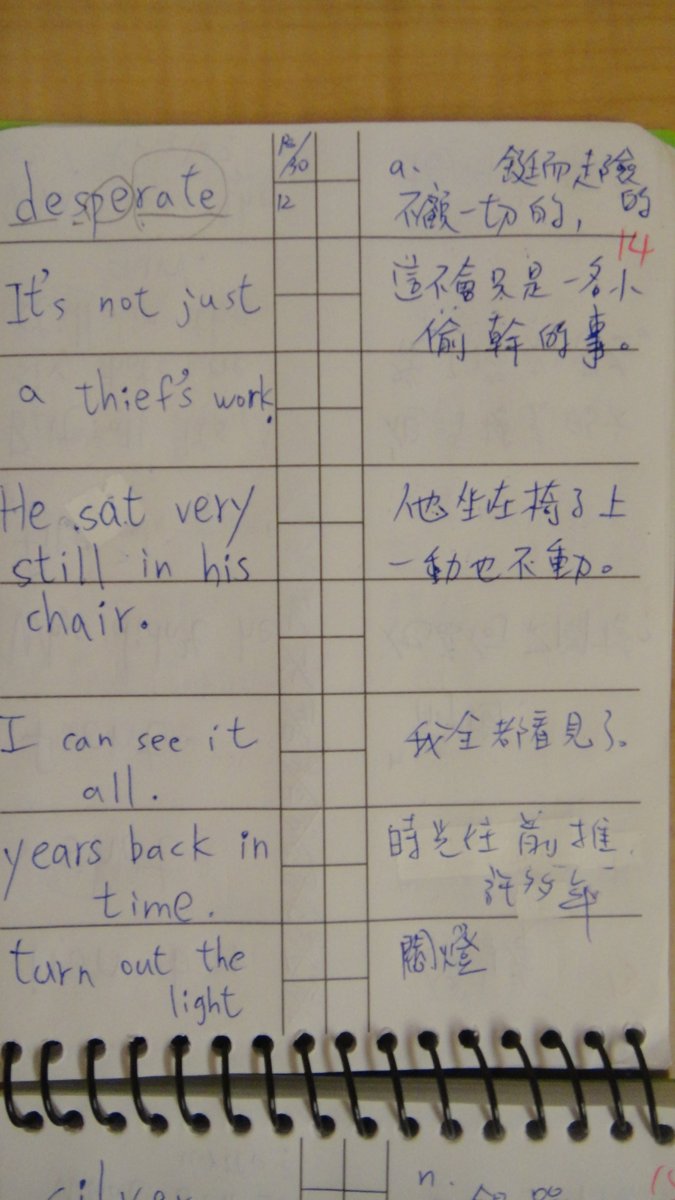 desperate
12
a. 鋌而走險的
不顧一切的,
14
It's not just
這不會只是一名小
偷幹的事。
a thief's work.
He sat very
他坐在椅子上
still in his
一動也不動。
chair.
I can see it
我全都看見了。
all.
years back in
時光往前推
time.
許多年
turn out the
關燈
light
silver
n.